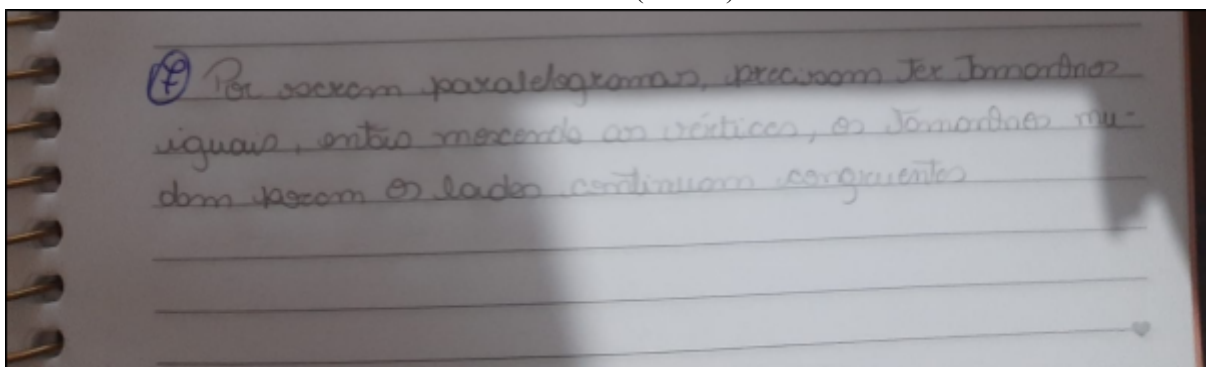 7 Por serem paralelogramas, precisam ter tamanhos
iguais, então mexendo as vértices, os tamanhos mu-
dam porem os lados continuam congruentes